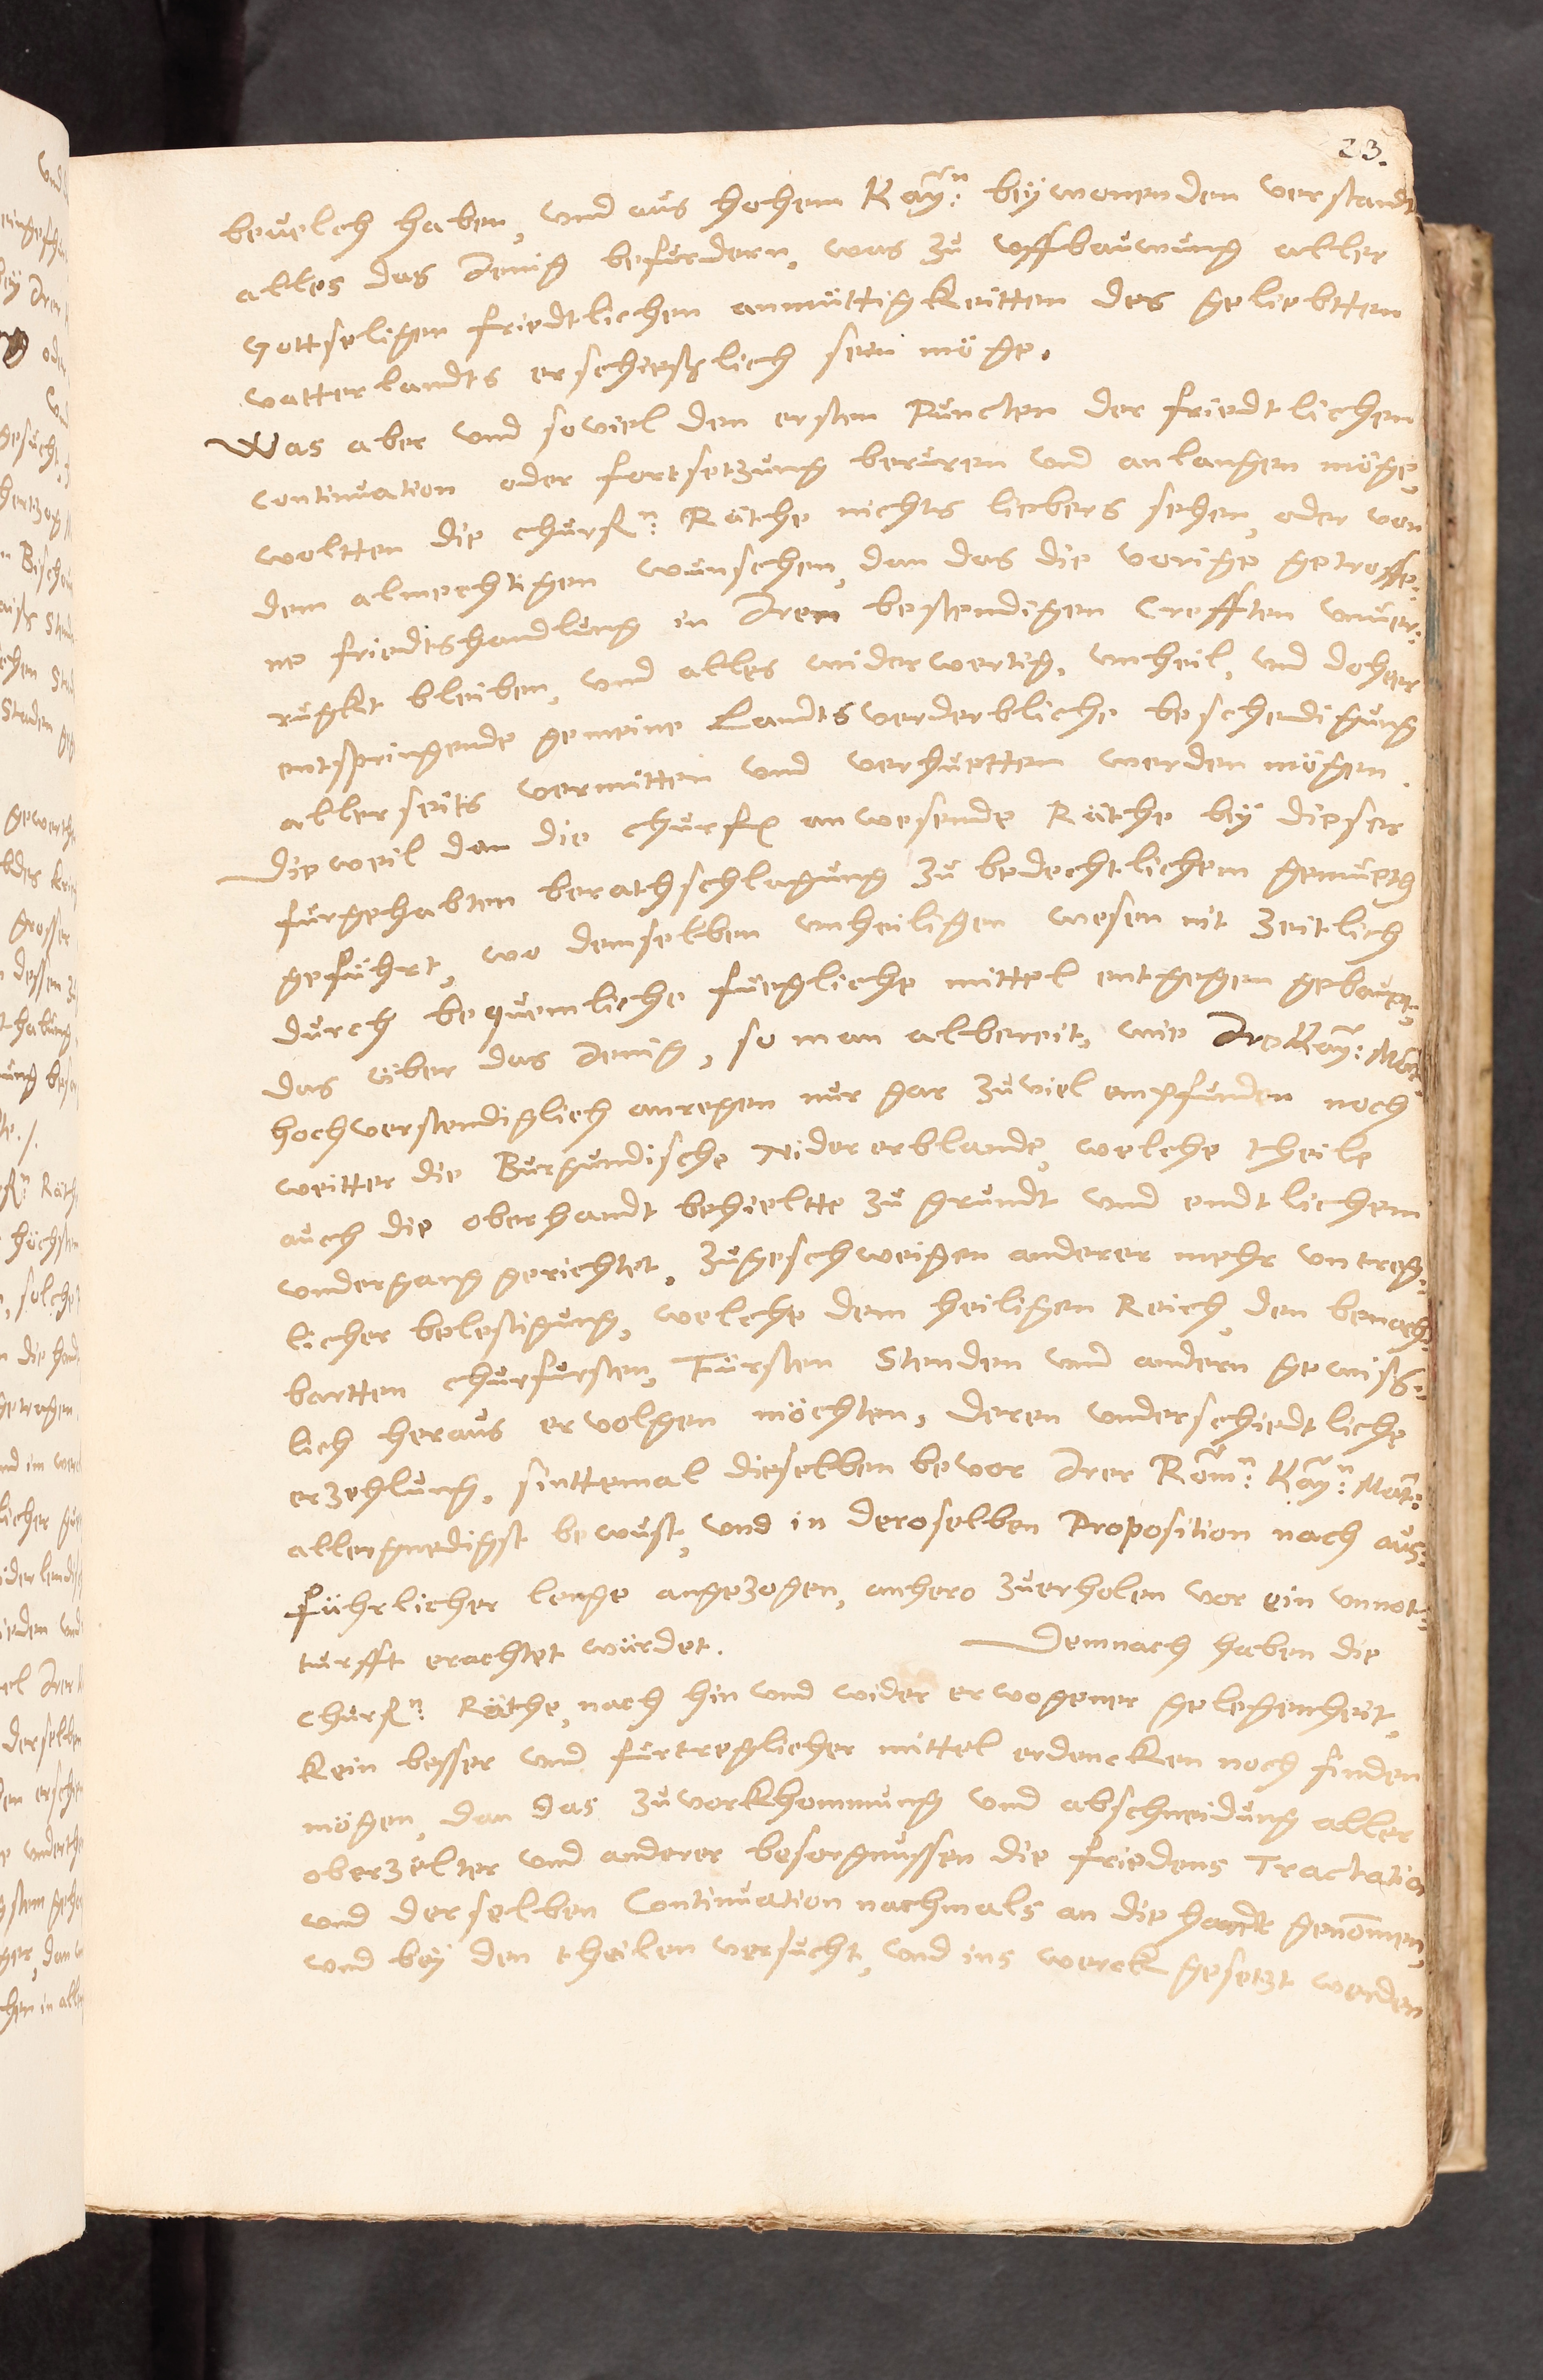 23.
bevelch haben, und aus hohem Kay:n beÿwonenden verstandt
alles das Jenig befurdern, was zu uffbauwung aller
Gottseligen friedtlichen anmüttigkeitten des geliebtten
vatterlandts erschieslich sein möge.
Was aber und soviel den ersten Puncten der friedtlichen
continuation oder fortsetzung beruren und anlangen möge,
woltten die churf:n Räthe nichts liebers sehen, oder von
dem almechtigen wünschen, dan das die vorige getroffe-
ne friedtshandlung in Iren bestendigen Crefften unver-
ruckt bleiben, und alles widerwertig, unheil, und doher
entspringende gemeine Landtsverderbliche beschedigung
allerseits vermitten und verhuetten werden mögen.
Dieweil dan die churf: anwesende Räthe beÿ dieser
furgehabten berathschlagung zu bedechtlichem gemueth
geführt, wo demselben unheiligen wesen nit zeitlich
durch bequemliche füegliche mittel entgegen gebauet,
das über das Jenig, so man albereit, wie Ire Kay: Mat:
hochverstendiglich anregen nur gar zuviel empfunden noch
weitter die Burgundische Nidererblande, welche theile
auch die oberhandt behieltte zu grundt und endtlichem
undergang gerichtet, zugeschweigen anderer mehr untreg-
licher belestigung, welche dem heiligen Reich, den benach-
bartten churfursten, Fürsten Stenden und andern gewiss-
lich heraus ervolgen möchten, deren underschiedtliche
erzehlung, sinttemal dieselben bevor Irer Röm:n Kay:n Mat:
allergnedigst bewust, und in deroselben Proposition nach aus-
führlicher lenge angezogen, anhero zuerholen vor ein unnot-
turfft erachtet würdet. Demnach haben die
churf:n Räthe, nach hin und wider erwogener gelegenheit,
kein besser und fürtreglicher mittel erdencken noch finden
mögen, dan das zuvorkhommung und abschneidung aller
oberzelter und anderer besorgnussen die friedens Tractation
und derselben Continuation nachmals an die handt genommen,
und beÿ den theilen versucht, und ins werck gesetzt werden